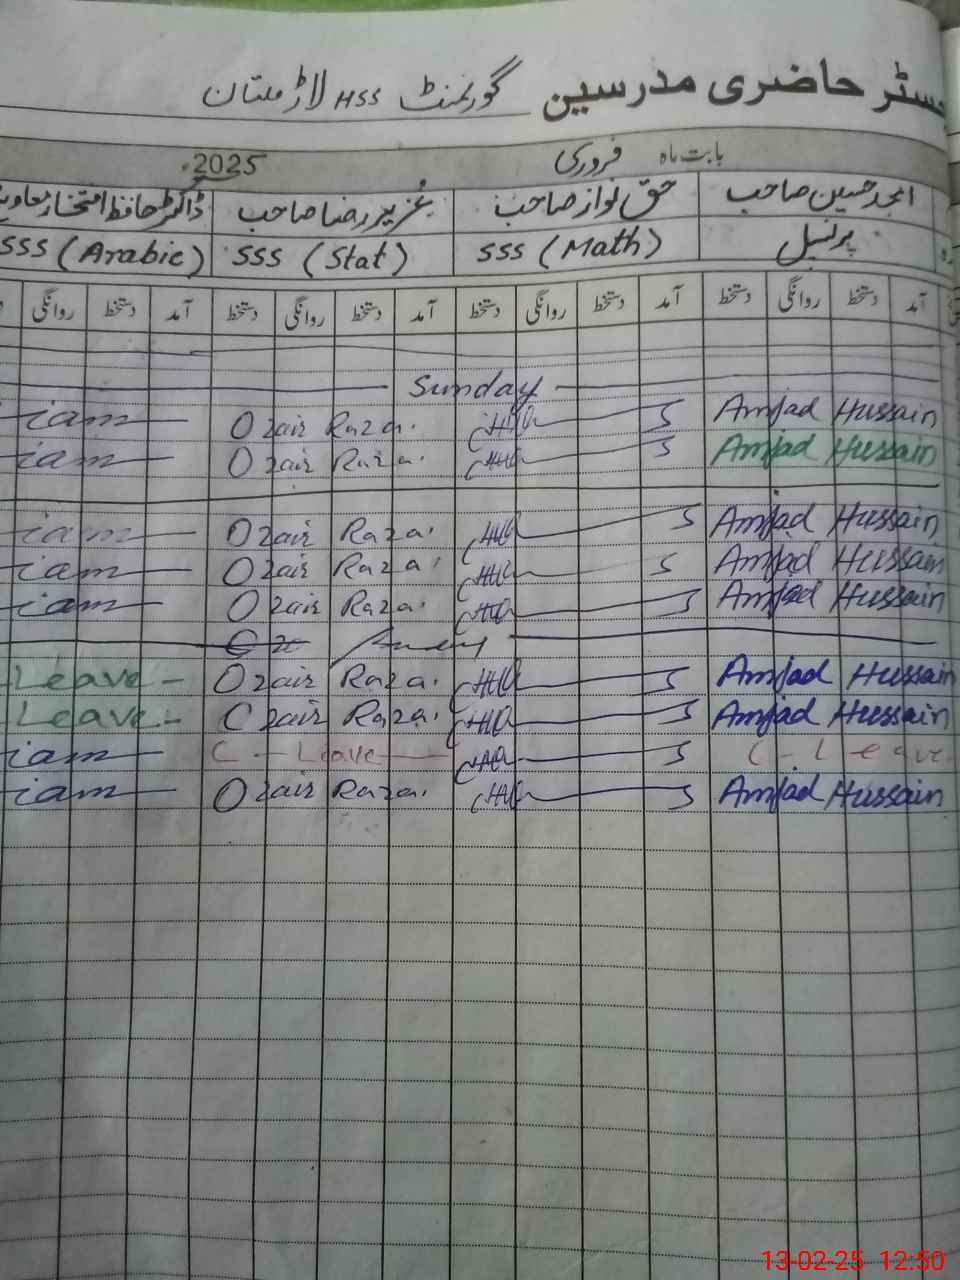 رجسٹر حاضری مدرسین گورنمنٹ HSS لاڑ ملتان
بابت ماہ فروری 2025
امجد حسین صاحب حق نواز صاحب عزیر رضا صاحب ڈاکٹر حافظ افتخار معاویہ
پرنسپل SSS (Math) SSS (Stat) SSS (Arabic)
آمد دستخط روانگی دستخط آمد دستخط روانگی دستخط آمد دستخط روانگی دستخط آمد دستخط روانگی
Sunday
Amjad Hussain Ozair Raza
Amjad Hussain Ozair Raza
Amjad Hussain Ozair Raza
Amjad Hussain Ozair Raza
Amjad Hussain Ozair Raza
Amjad Hussain Ozair Raza Leave
Amjad Hussain Ozair Raza Leave
C - Leave C - Leave
Amjad Hussain Ozair Raza
13-02-25 12:50